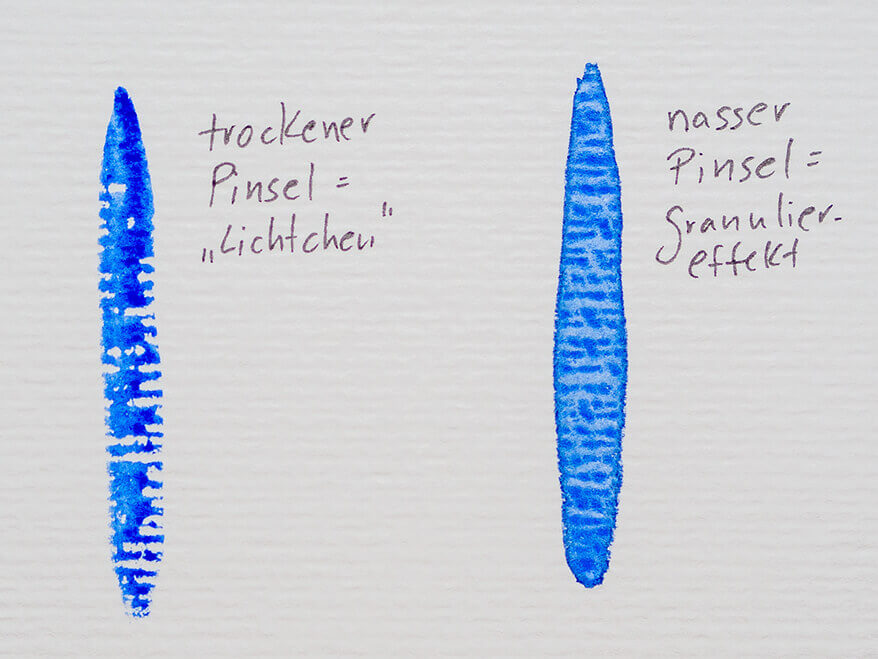 trockener
Pinsel =
„Lichtchen"
nasser
Pinsel =
Granulier-
effekt